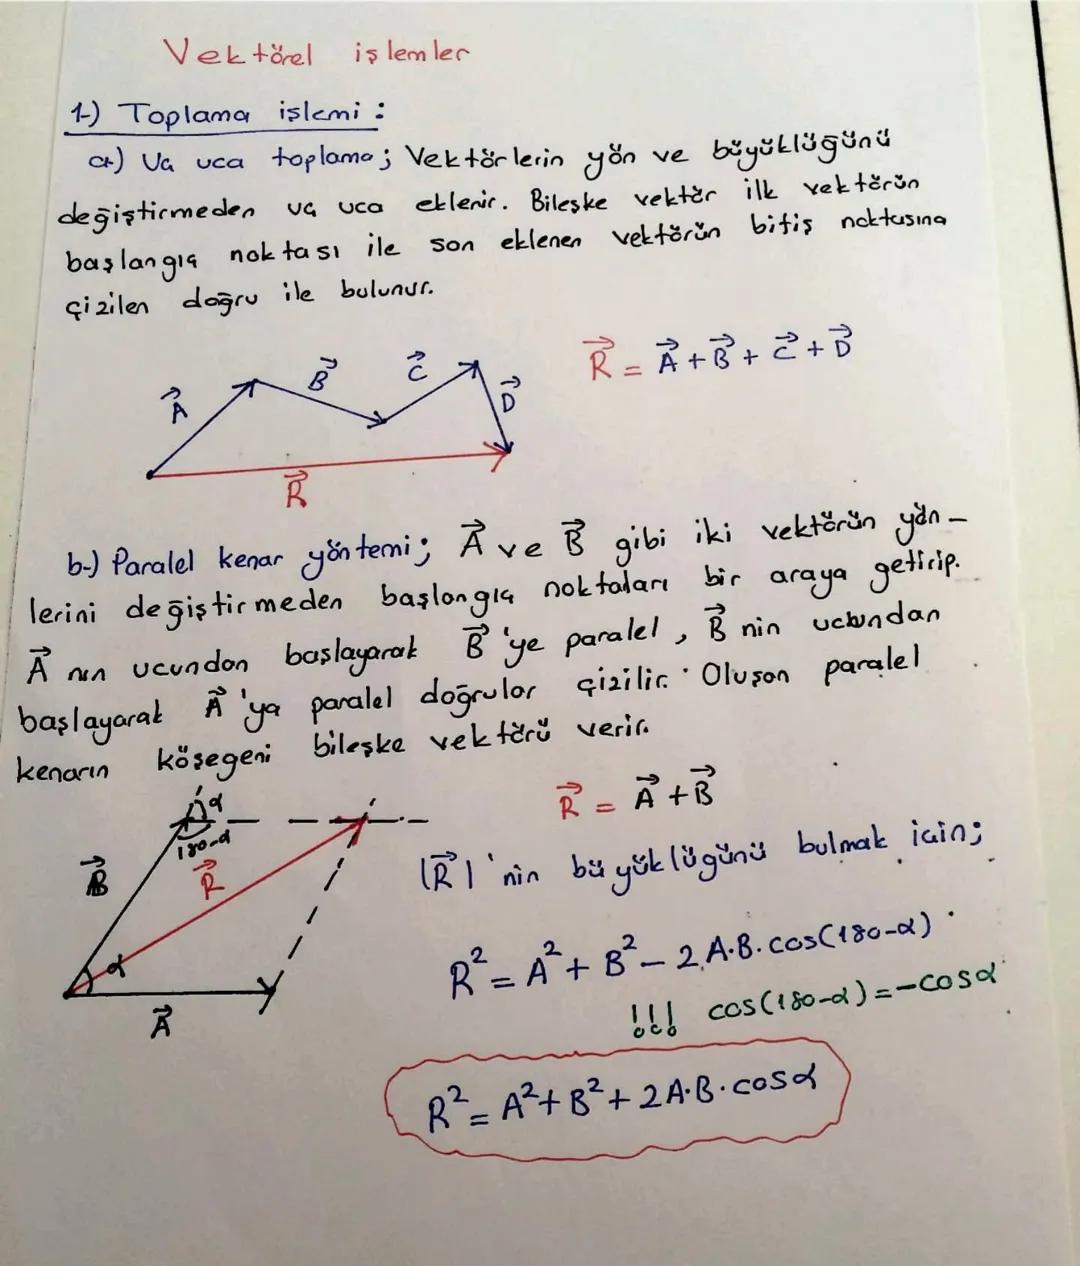 Vektörel işlemler
1-) Toplama işlemi :
a-) Uç uca toplama; Vektörlerin yön ve büyüklüğünü
değiştirmeden uç uca eklenir. Bileşke vektör ilk vektörün
başlangıç noktası ile son eklenen vektörün bitiş noktasına
çizilen doğru ile bulunur.
A⃗ B⃗ C⃗ D⃗
R⃗ = A⃗ + B⃗ + C⃗ + D⃗
R⃗
b-) Paralel kenar yöntemi; A⃗ ve B⃗ gibi iki vektörün yön-
lerini değiştirmeden başlangıç noktaları bir araya getirip.
A⃗ nın ucundan başlayarak B⃗ 'ye paralel, B⃗ nin ucundan
başlayarak A⃗ 'ya paralel doğrular çizilir. Oluşan paralel
kenarın köşegeni bileşke vektörü verir.
α
180-α
B⃗
R⃗
α
A⃗
R⃗ = A⃗ + B⃗
|R⃗| 'nin büyüklügünü bulmak için;
R² = A² + B² - 2.A.B.cos(180-α)
!!! cos(180-α) = -cosα
R² = A² + B² + 2A.B.cosα